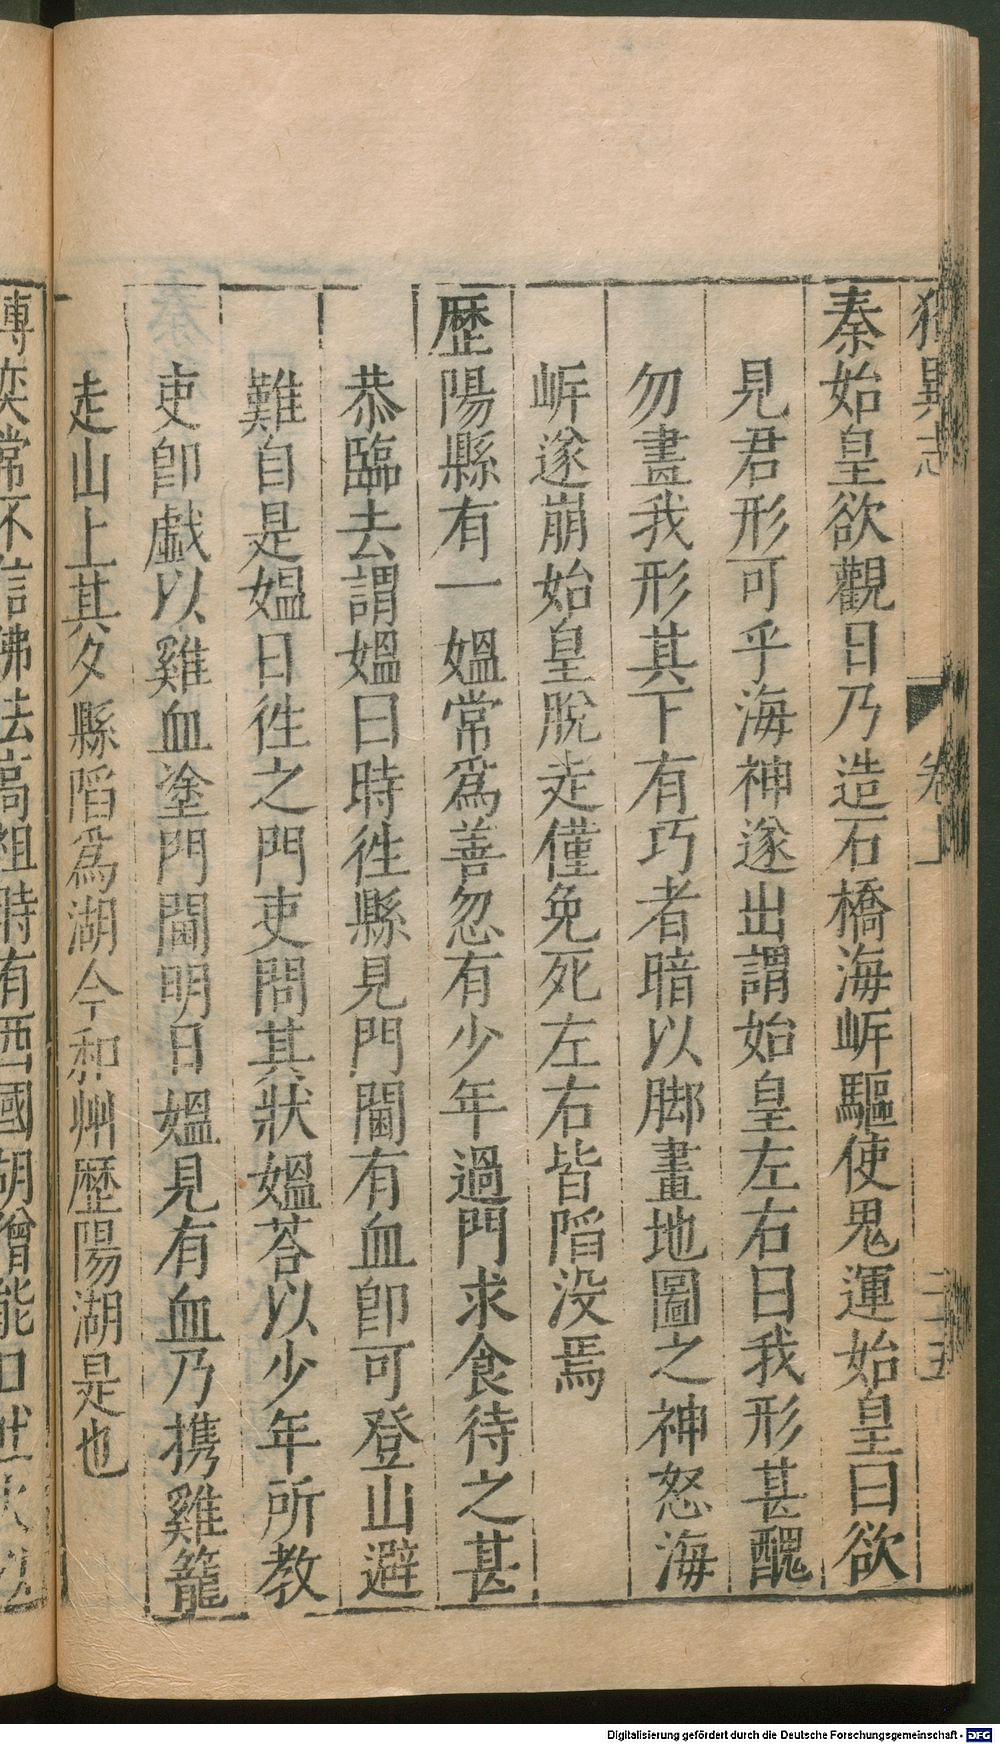 獨異志 卷上 二十五
秦始皇欲觀日乃造石橋海岍驅使鬼運始皇曰欲
見君形可乎海神遂出謂始皇左右曰我形甚醜
勿畫我形其下有巧者暗以脚畫地圖之神怒海
岍遂崩始皇脫走僅免死左右皆陷没焉
歷陽縣有一媼常爲善忽有少年過門求食待之甚
恭臨去謂媼曰時徃縣見門閫有血卽可登山避
難自是媼日徃之門吏問其狀媼荅以少年所教
吏卽戱以雞血塗門閫明日媼見有血乃携雞籠
走山上其夕縣陷爲湖今和州歷陽湖是也
傅奕常不信佛法高祖時有西國胡僧能口
Digitalisierung gefördert durch die Deutsche Forschungsgemeinschaft - DFG